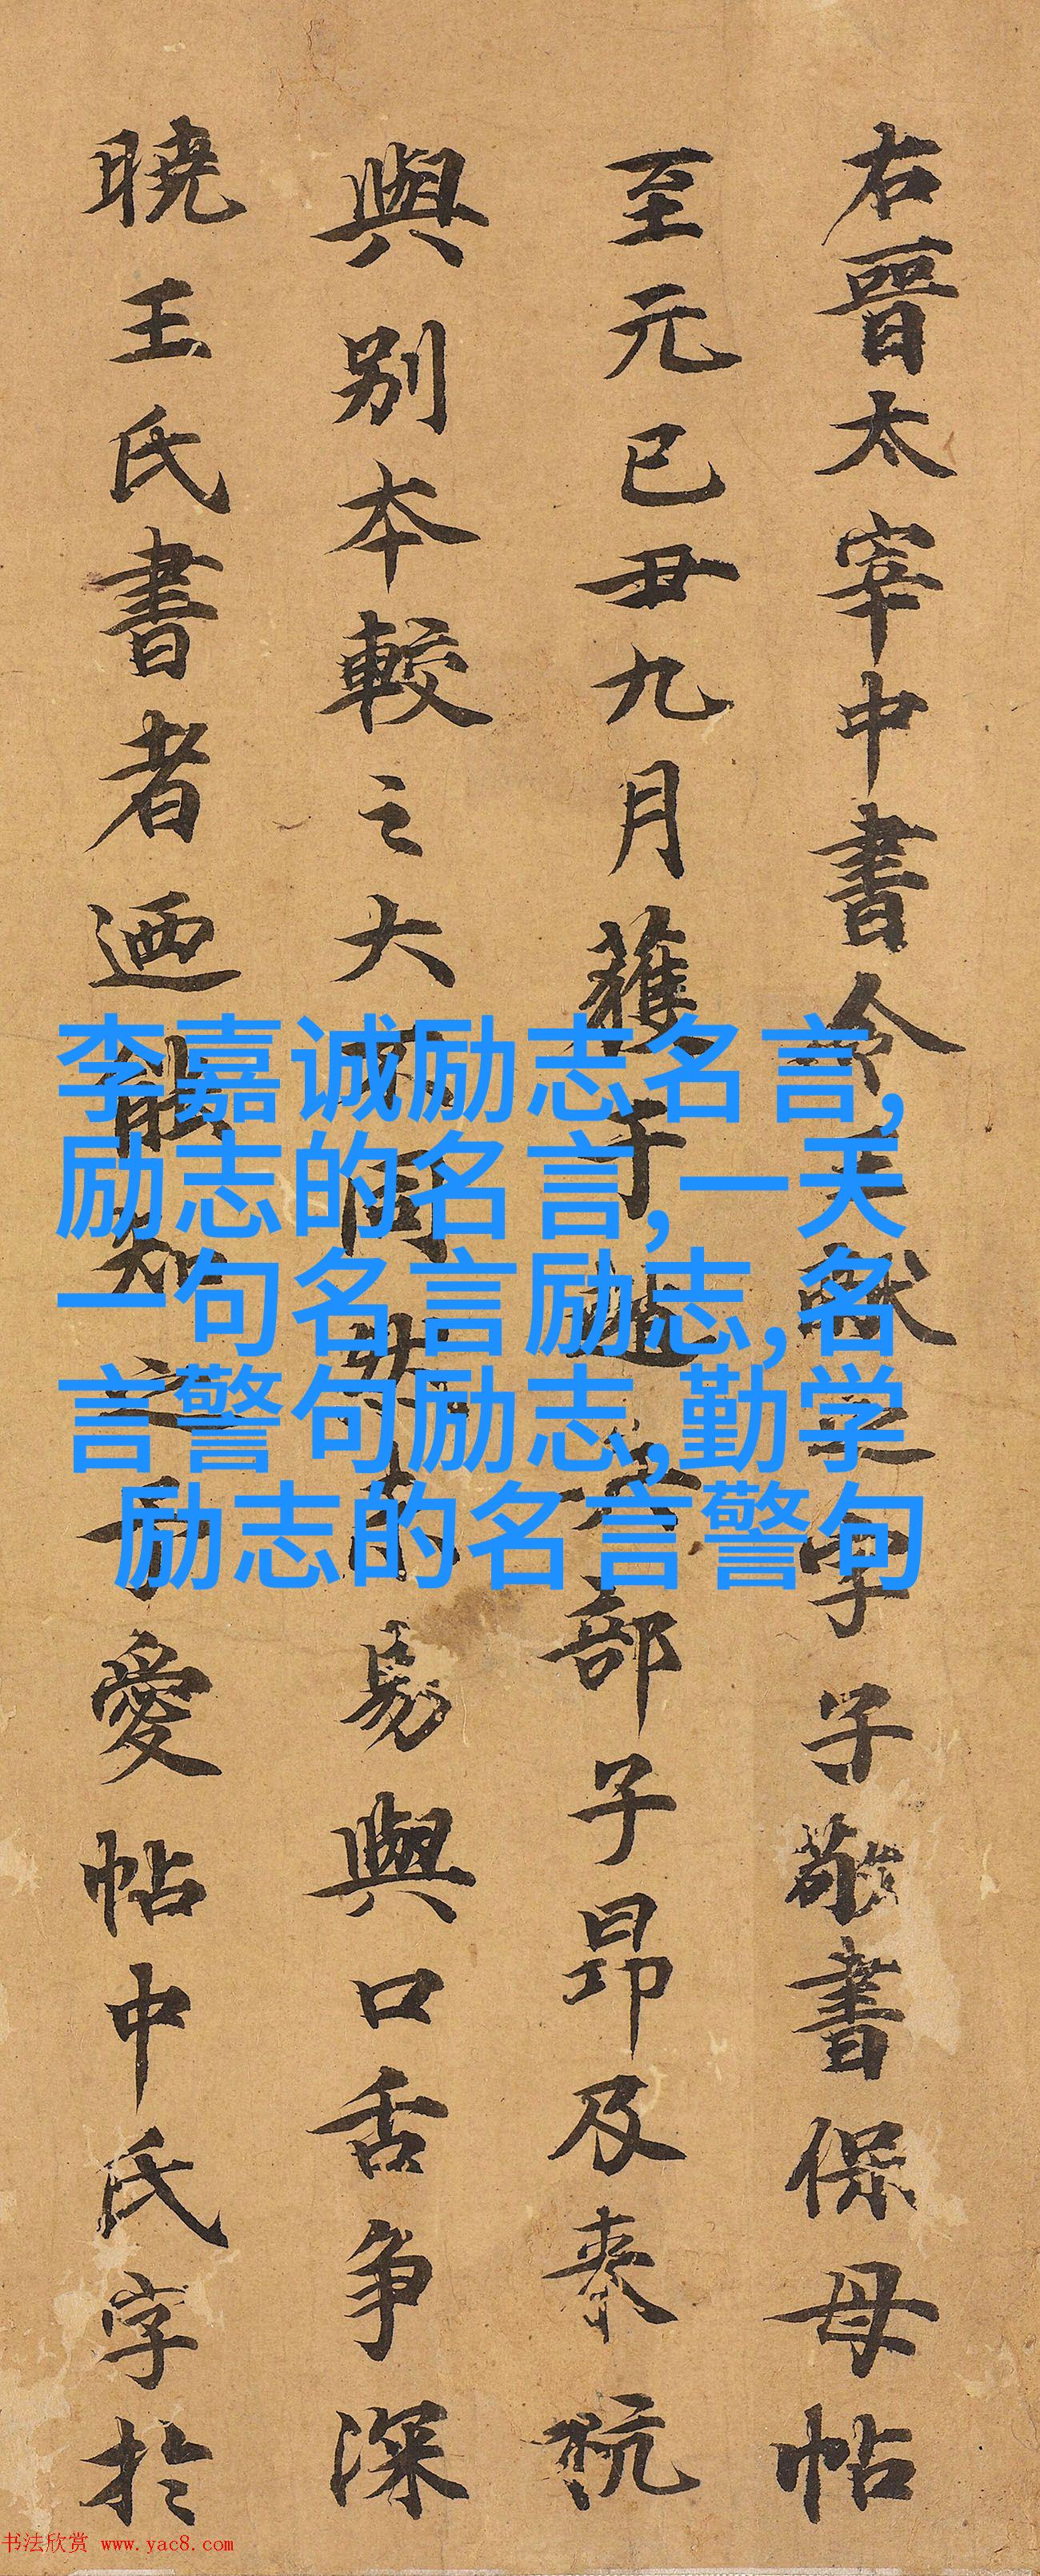 右晉太宰中書令王獻之字子敬書保母帖
至元已丑九月蒦于越部子昂及來杭
與别本較之大不同易與口舌爭深
曉王氏書者迺能知之予愛帖中氏字於
李嘉诚励志名言,
励志的名言,一天
一句名言励志,名
言警句励志,勤学
励志的名言警句
书法欣赏 www.yac8.com